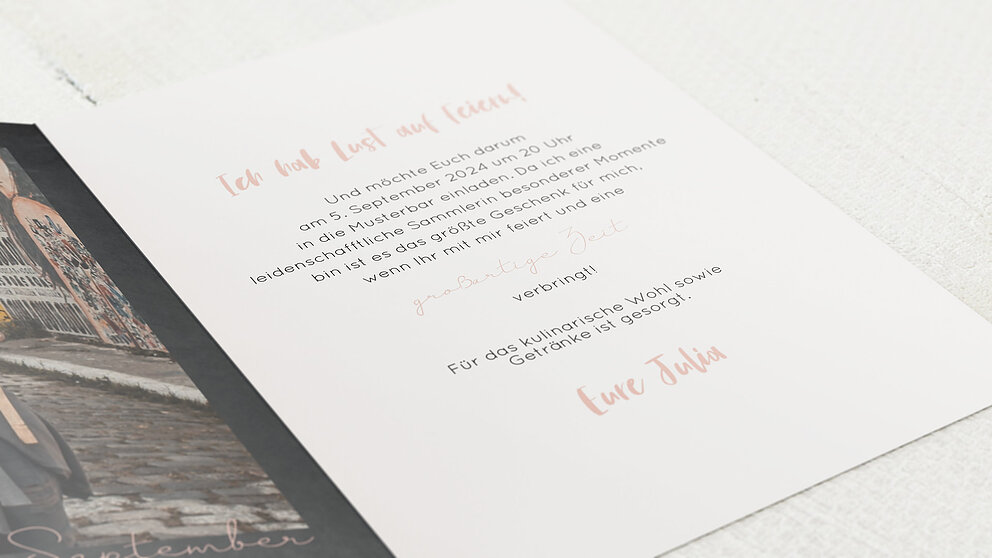 Ich hab Lust auf Feiern!
Und möchte Euch darum
am 5. September 2024 um 20 Uhr
in die Musterbar einladen. Da ich eine
leidenschafftliche Sammlerin besonderer Momente
bin ist es das größte Geschenk für mich,
wenn Ihr mit mir feiert und eine
großartige Zeit
verbringt!
Für das kulinarische Wohl sowie
Getränke ist gesorgt.
Eure Julia
September